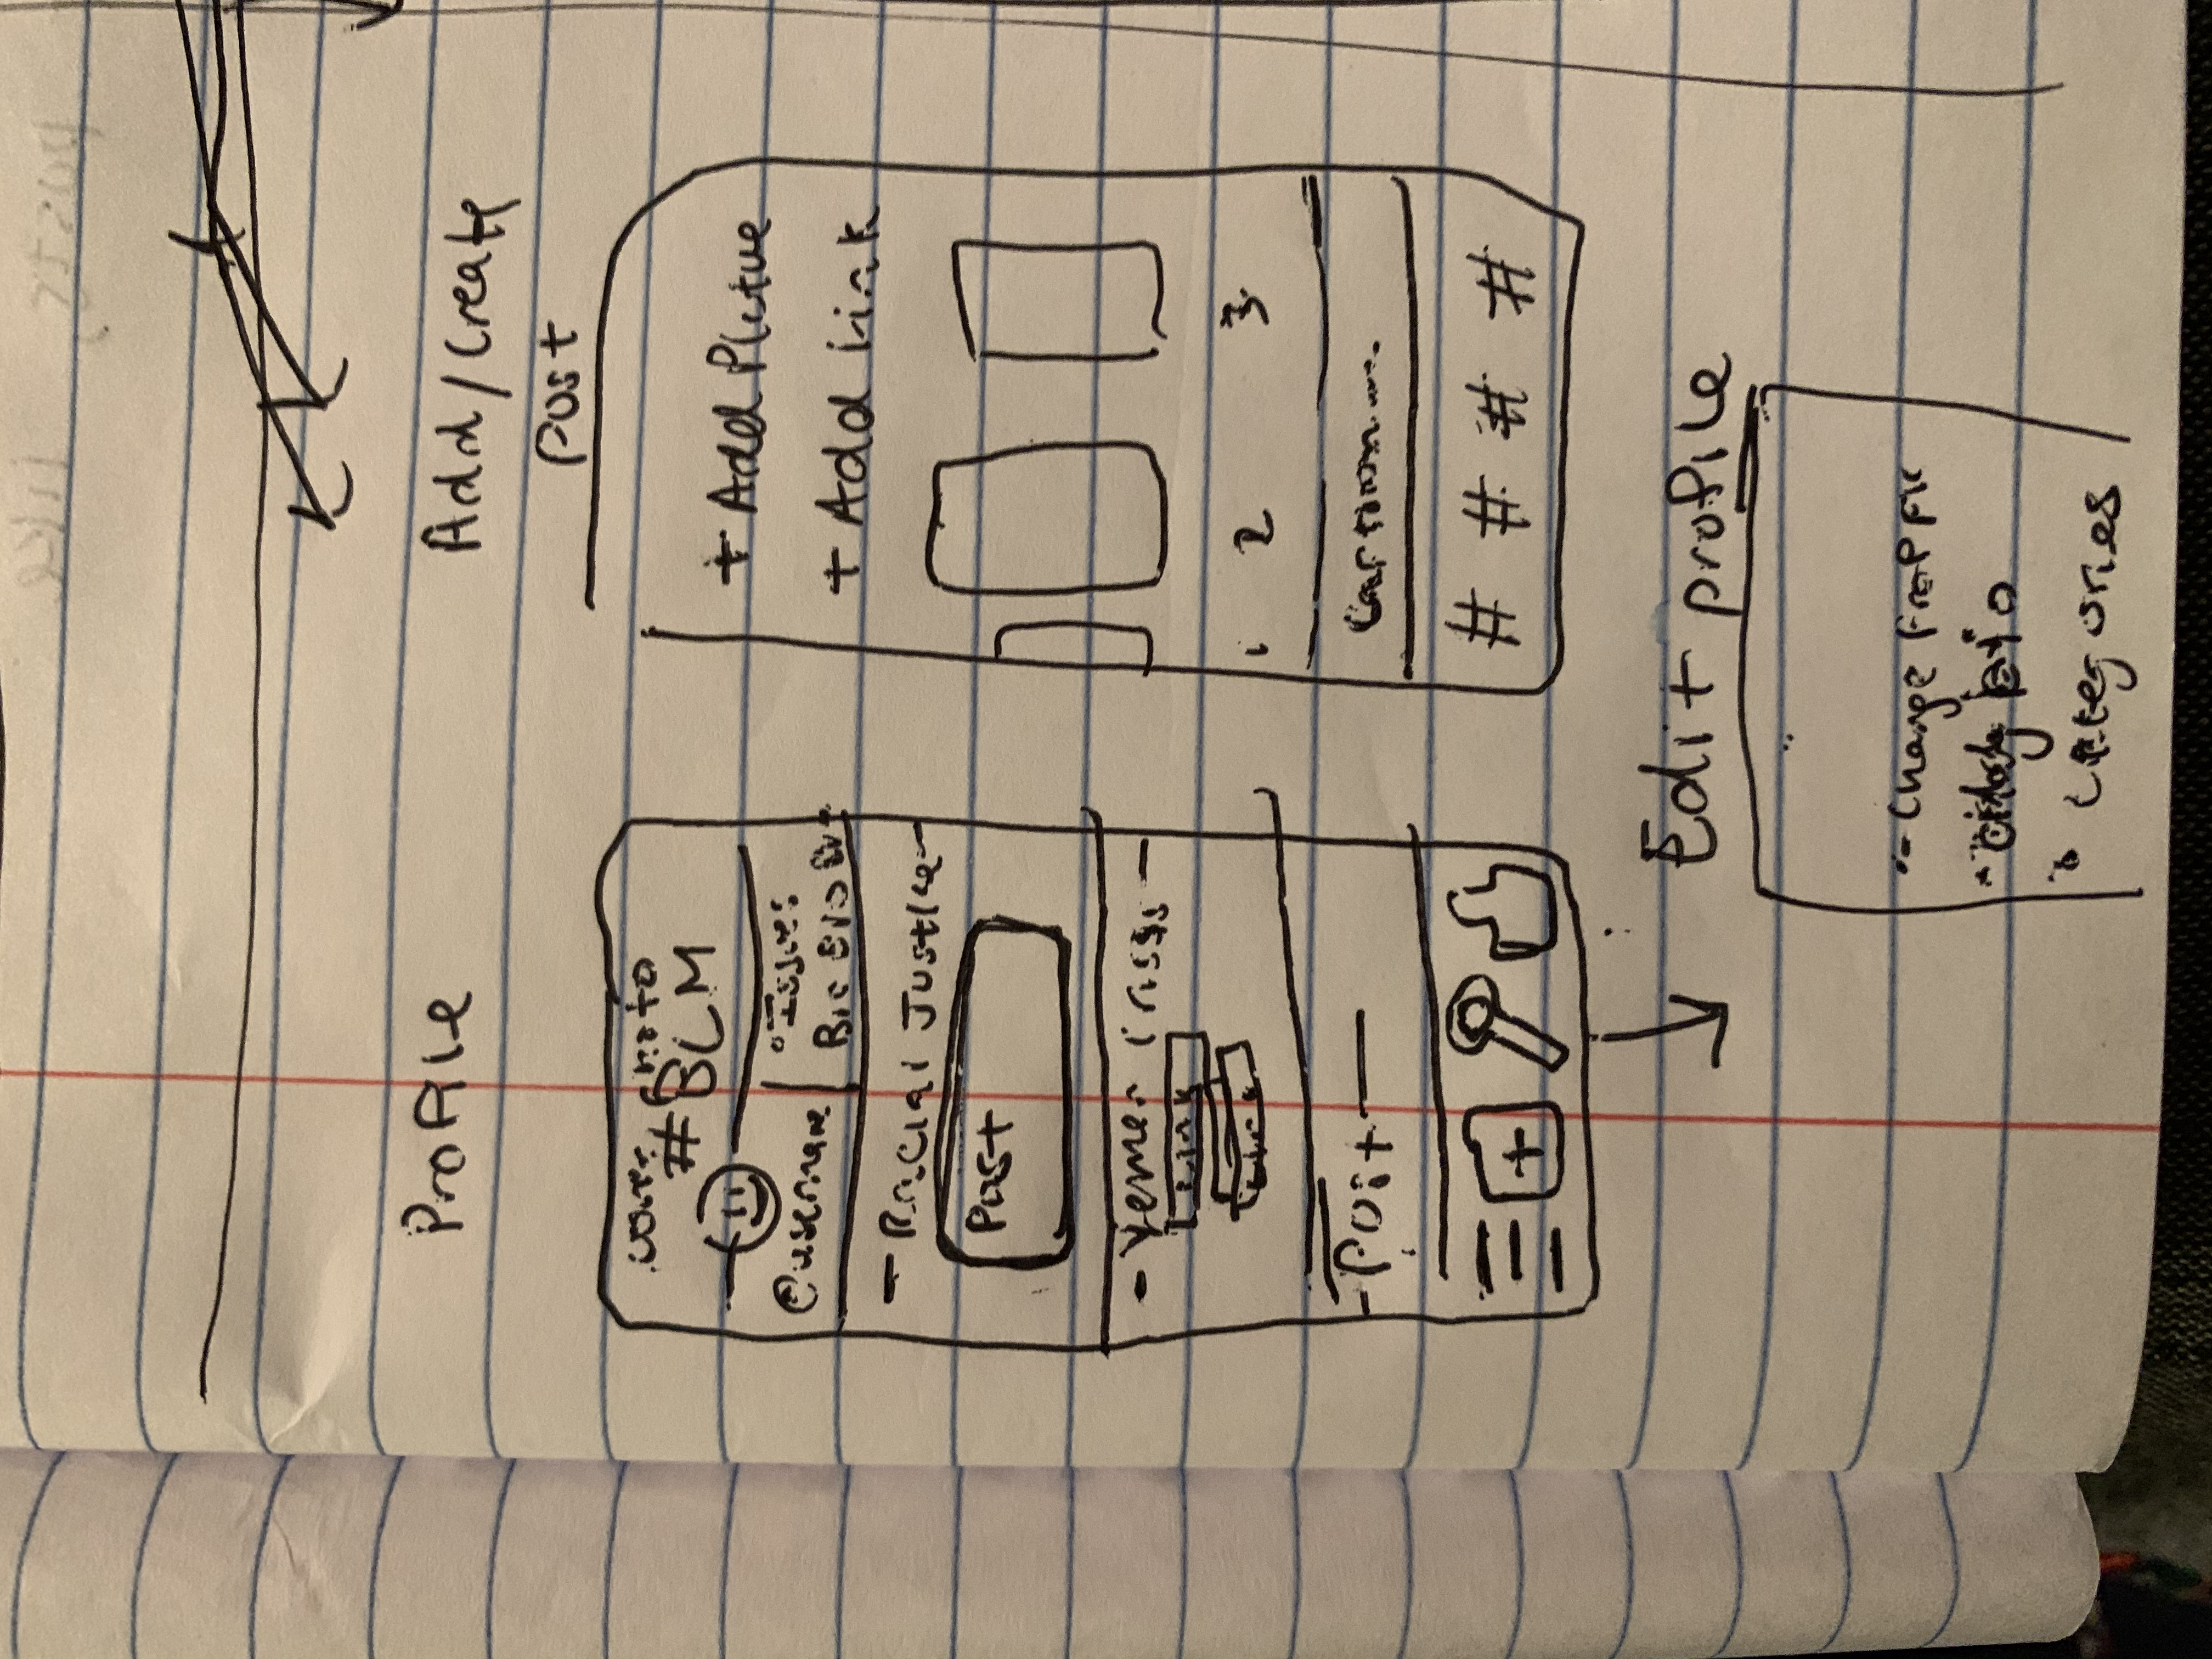 Profile
Cover photo
#BLM
@username
Issues
Bio Bio B
- Racial Justice -
Post
- Yemen Crisis -
Link
Link
- Post -
+
Add/Create
Post
+ Add Picture
+ Add Link
1 2 3
Caption....
# # # #
Edit profile
- Change Prof Pic
- Bio
Categories